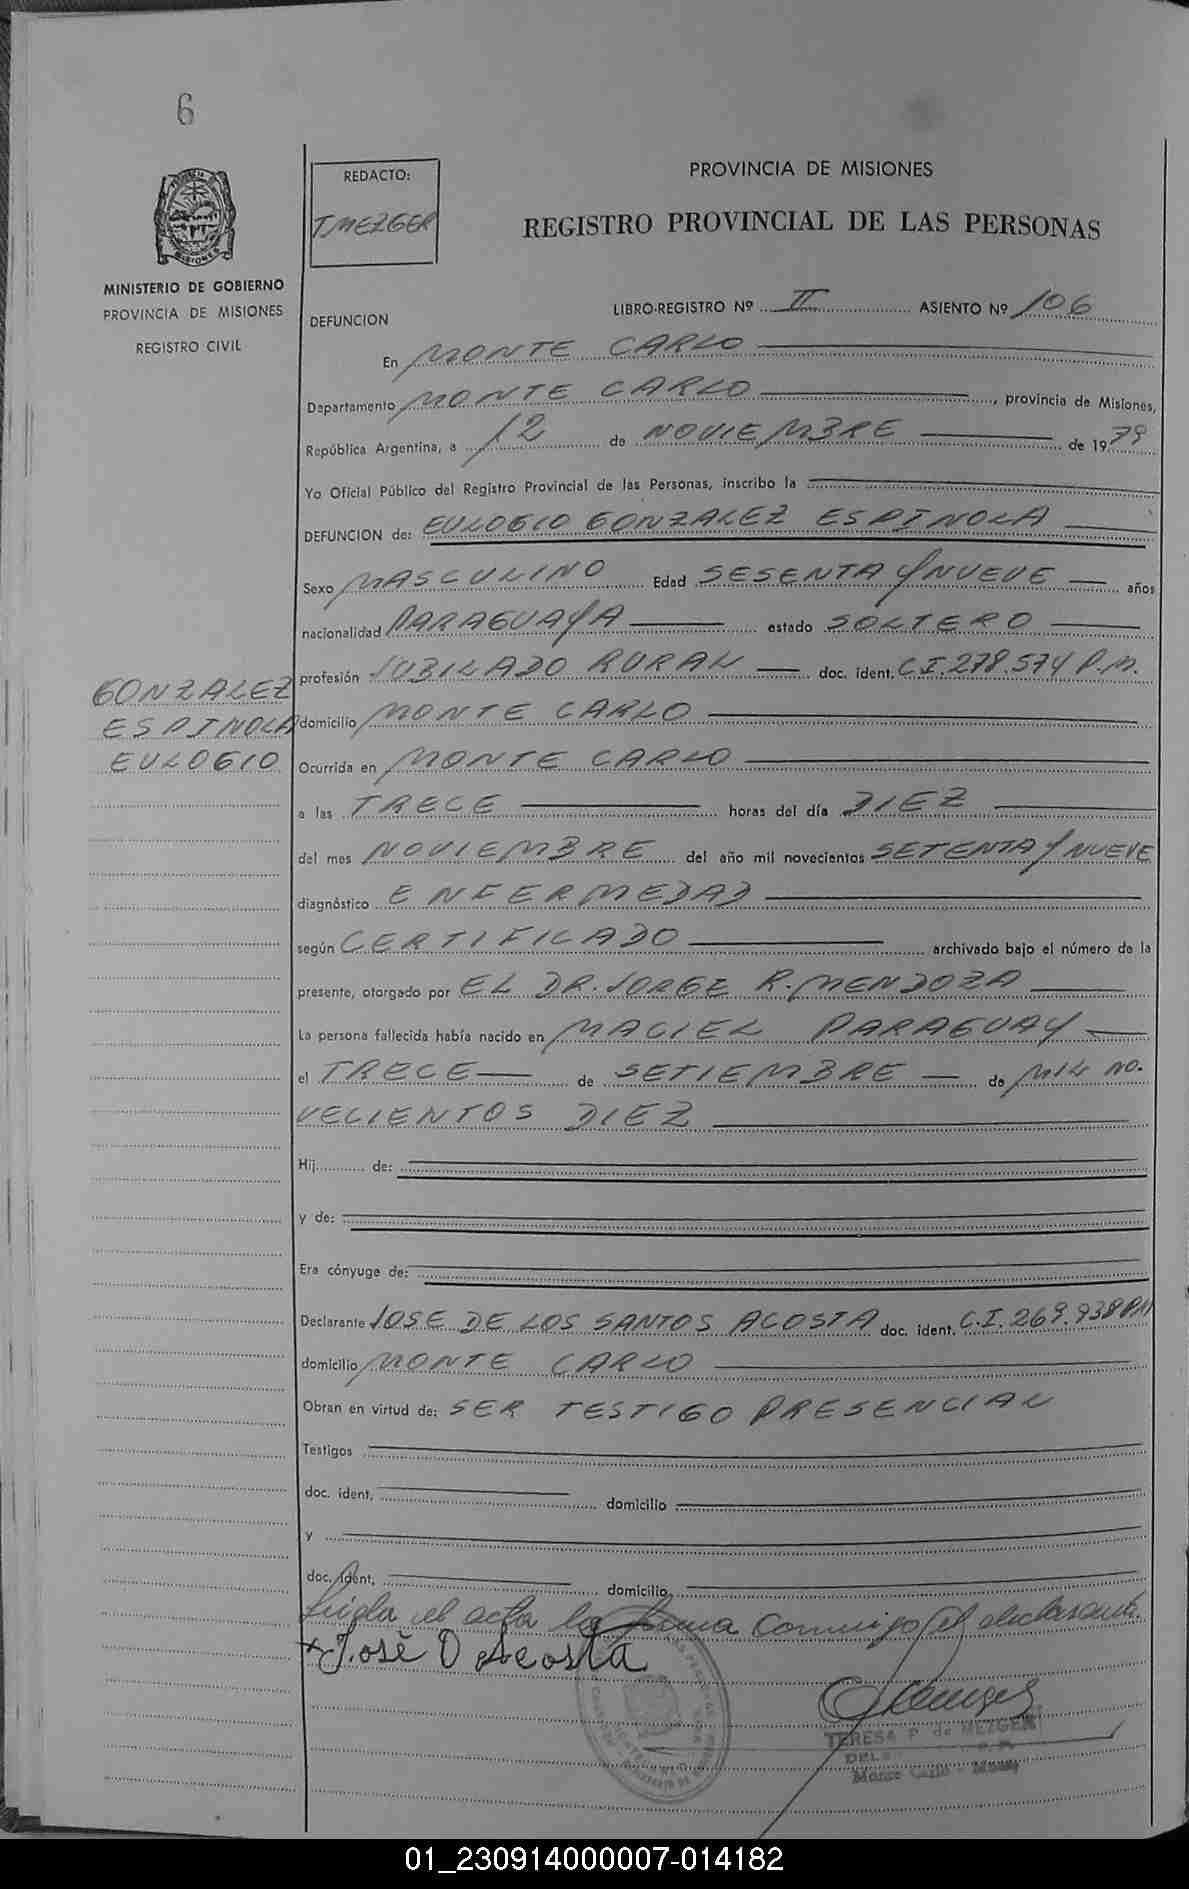 6
REDACTO:
T. MEZGER
PROVINCIA DE MISIONES
REGISTRO PROVINCIAL DE LAS PERSONAS
MINISTERIO DE GOBIERNO
PROVINCIA DE MISIONES
REGISTRO CIVIL
DEFUNCION
LIBRO-REGISTRO Nº II ASIENTO Nº 106
En MONTE CARLO
Departamento MONTE CARLO, provincia de Misiones,
República Argentina, a 12 de NOVIEMBRE de 1979
Yo Oficial Público del Registro Provincial de las Personas, inscribo la
DEFUNCION de: EULOGIO GONZALEZ ESPINOLA
Sexo MASCULINO Edad SESENTA Y NUEVE años
nacionalidad PARAGUAYA estado SOLTERO
profesión JUBILADO RURAL doc. ident. C.I. 278.574 P.M.
GONZALEZ
ESPINOLA
EULOGIO
domicilio MONTE CARLO
Ocurrida en MONTE CARLO
a las TRECE horas del día DIEZ
del mes NOVIEMBRE del año mil novecientos SETENTA Y NUEVE
diagnóstico ENFERMEDAD
según CERTIFICADO archivado bajo el número de la
presente, otorgado por EL DR. JORGE R. MENDOZA
La persona fallecida había nacido en MACIEL PARAGUAY
el TRECE de SETIEMBRE de MIL NO.
VECIENTOS DIEZ
Hij de:
y de:
Era cónyuge de:
Declarante JOSE DE LOS SANTOS ACOSTA doc. ident. C.I. 269.938 P.M
domicilio MONTE CARLO
Obran en virtud de: SER TESTIGO PRESENCIAL
Testigos
doc. ident, domicilio
y
doc. ident, domicilio
Leída el acta la firma conmigo el declarante.
José D Acosta
TERESA P. de MEZGER
Monte Carlo - Mnes
01_230914000007-014182